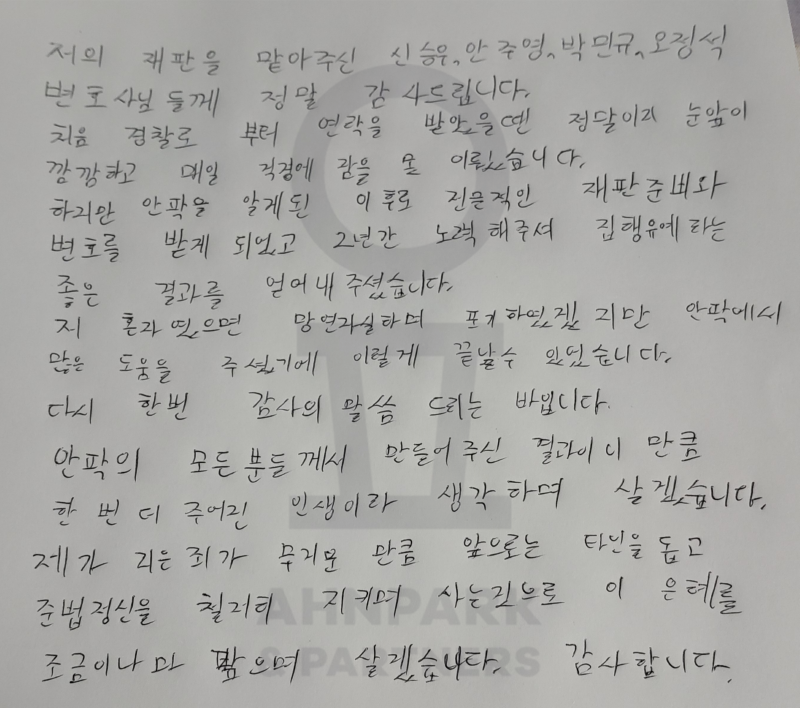 저의 재판을 맡아주신 신승우, 안주영, 박민규, 오정석
변호사님 들께 정말 감사드립니다.
처음 경찰로 부터 연락을 받았을땐 정말이지 눈앞이
깜깜하고 매일 걱정에 잠을 못 이뤘습니다.
하지만 안팍을 알게된 이후로 전문적인 재판준비와
변호를 받게 되었고 2년간 노력해주셔 집행유예라는
좋은 결과를 얻어내 주셨습니다.
저 혼자 였으면 망연자실하며 포기하였겠지만 안팍에서
많은 도움을 주셨기에 이렇게 끝날수 있었습니다.
다시 한번 감사의 말씀 드리는 바입니다.
안팍의 모든분들께서 만들어주신 결과이니 만큼
한 번 더 주어진 인생이라 생각하며 살겠습니다.
제가 지은죄가 무거운 만큼 앞으로는 타인을 돕고
준법정신을 철저히 지키며 사는것으로 이 은혜를
조금이나마 갚으며 살겠습니다. 감사합니다.
AHNPARK
& PARTNERS